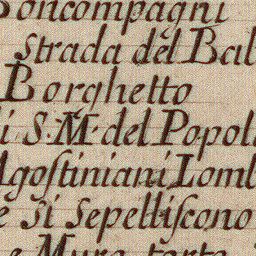 Boncompagni
strada del Bal
Borghetto
i S. M. del Popol
Agoſtiniani Lomb
e si sepelliſcono
e Muro torto